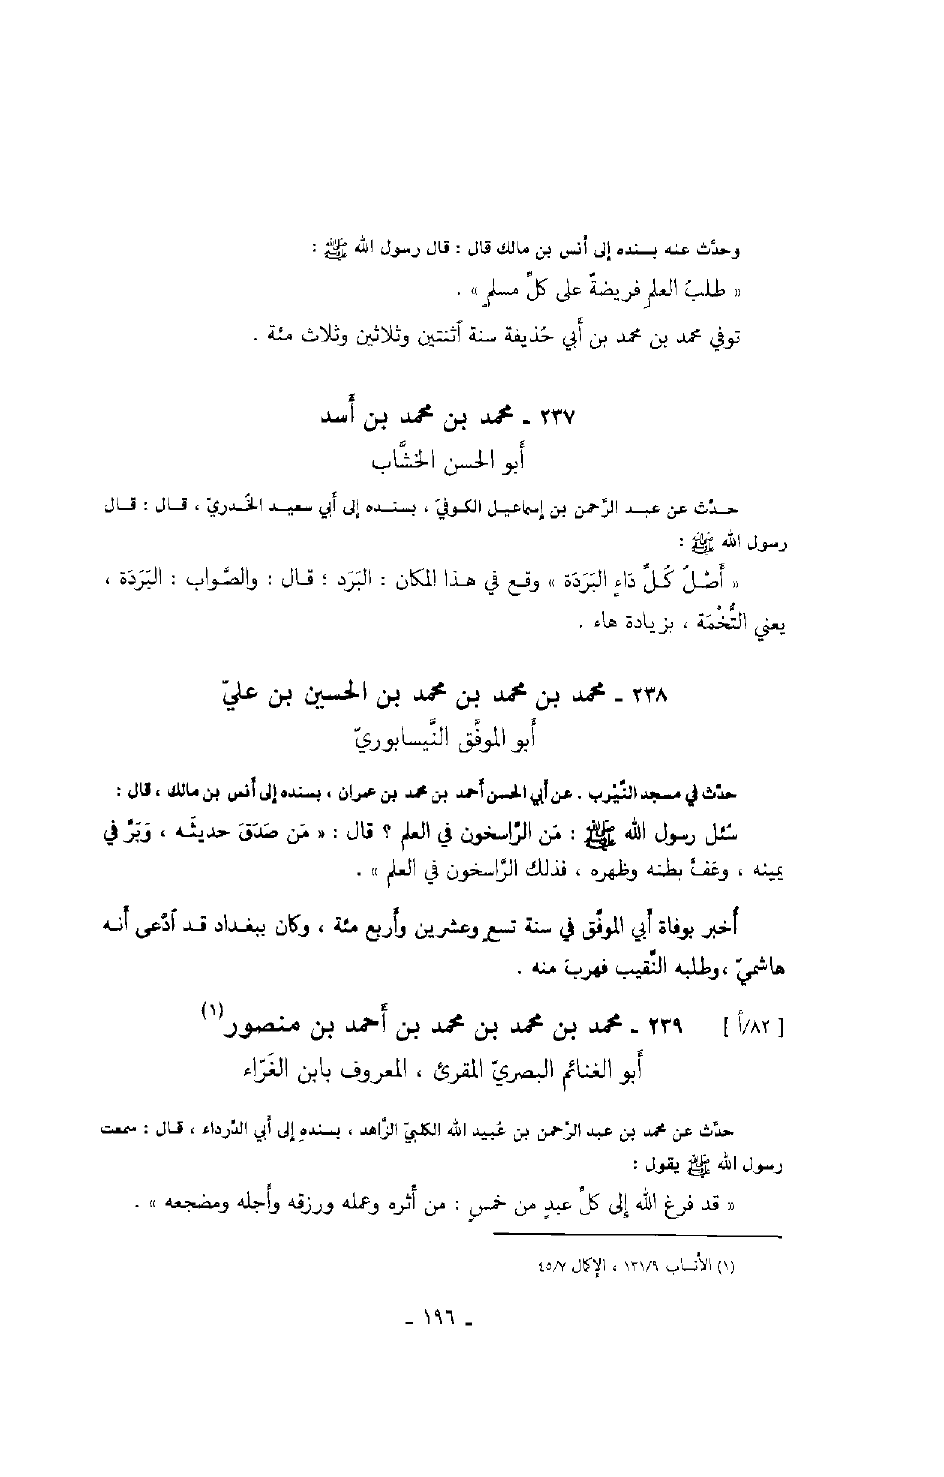 وحدَّث عنه بسنده إلى أنس بن مالك قال : قال رسول الله ﷺ :
« طلبُ العلمِ فريضةٌ على كلِّ مسلمٍ » .
توفي محمد بن محمد بن أبي حُذيفة سنة اثنتين وثلاثين وثلاث مئة .
٢٣٧ ـ محمد بن محمد بن أَسد
أبو الحسن الخشَّاب
حدَّث عن عبد الرَّحمن بن إسماعيل الكوفيّ ، بسنده إلى أبي سعيد الخُدريّ ، قال : قال
رسول الله ﷺ :
« أَصْلُ كُلِّ دَاءٍ البَرَدَة » وقع في هذا المكان : البَرَد ؛ قال : والصَّواب : البَرَدَة ،
يعني التُّخْمَة ، بزيادة هاء .
٢٣٨ ـ محمد بن محمد بن محمد بن الحسين بن عليّ
أبو الموفَّق النَّيسابوريّ
حدَّث في مسجد النَّيْرب . عن أبي الحسن أحمد بن محمد بن عمران ، بسنده إلى أنس بن مالك ، قال :
سُئل رسول الله ﷺ : مَن الرَّاسخون في العلم ؟ قال : « مَن صَدَقَ حديثَه ، وَبَرَّ في
يمينه ، وعَفَّ بطنه وظهره ، فذلك الرَّاسخون في العلم » .
أخبر بوفاة أبي الموفَّق في سنة تسع وعشرين وأربع مئة ، وكان ببغداد قد ادَّعى أنه
هاشميّ ، وطلبه النَّقيب فهربَ منه .
[ ٨٢/أ ] ٢٣٩ ـ محمد بن محمد بن محمد بن أحمد بن منصور(١)
أبو الغنائم البصريّ المقرئ ، المعروف بابن الغَرّاء
حدَّث عن محمد بن عبد الرَّحمن بن عُبيد الله الكلبيّ الزَّاهد ، بسندهِ إلى أبي الدَّرداء ، قال : سمعت
رسول الله ﷺ يقول :
« قد فرغ الله إلى كلِّ عبدٍ من خمسٍ : من أثره وعمله ورزقه وأجله ومضجعه » .
(١) الأنساب ١٣١/٩ ، الإكمال ٤٥/٧
ـ ١٩٦ ـ